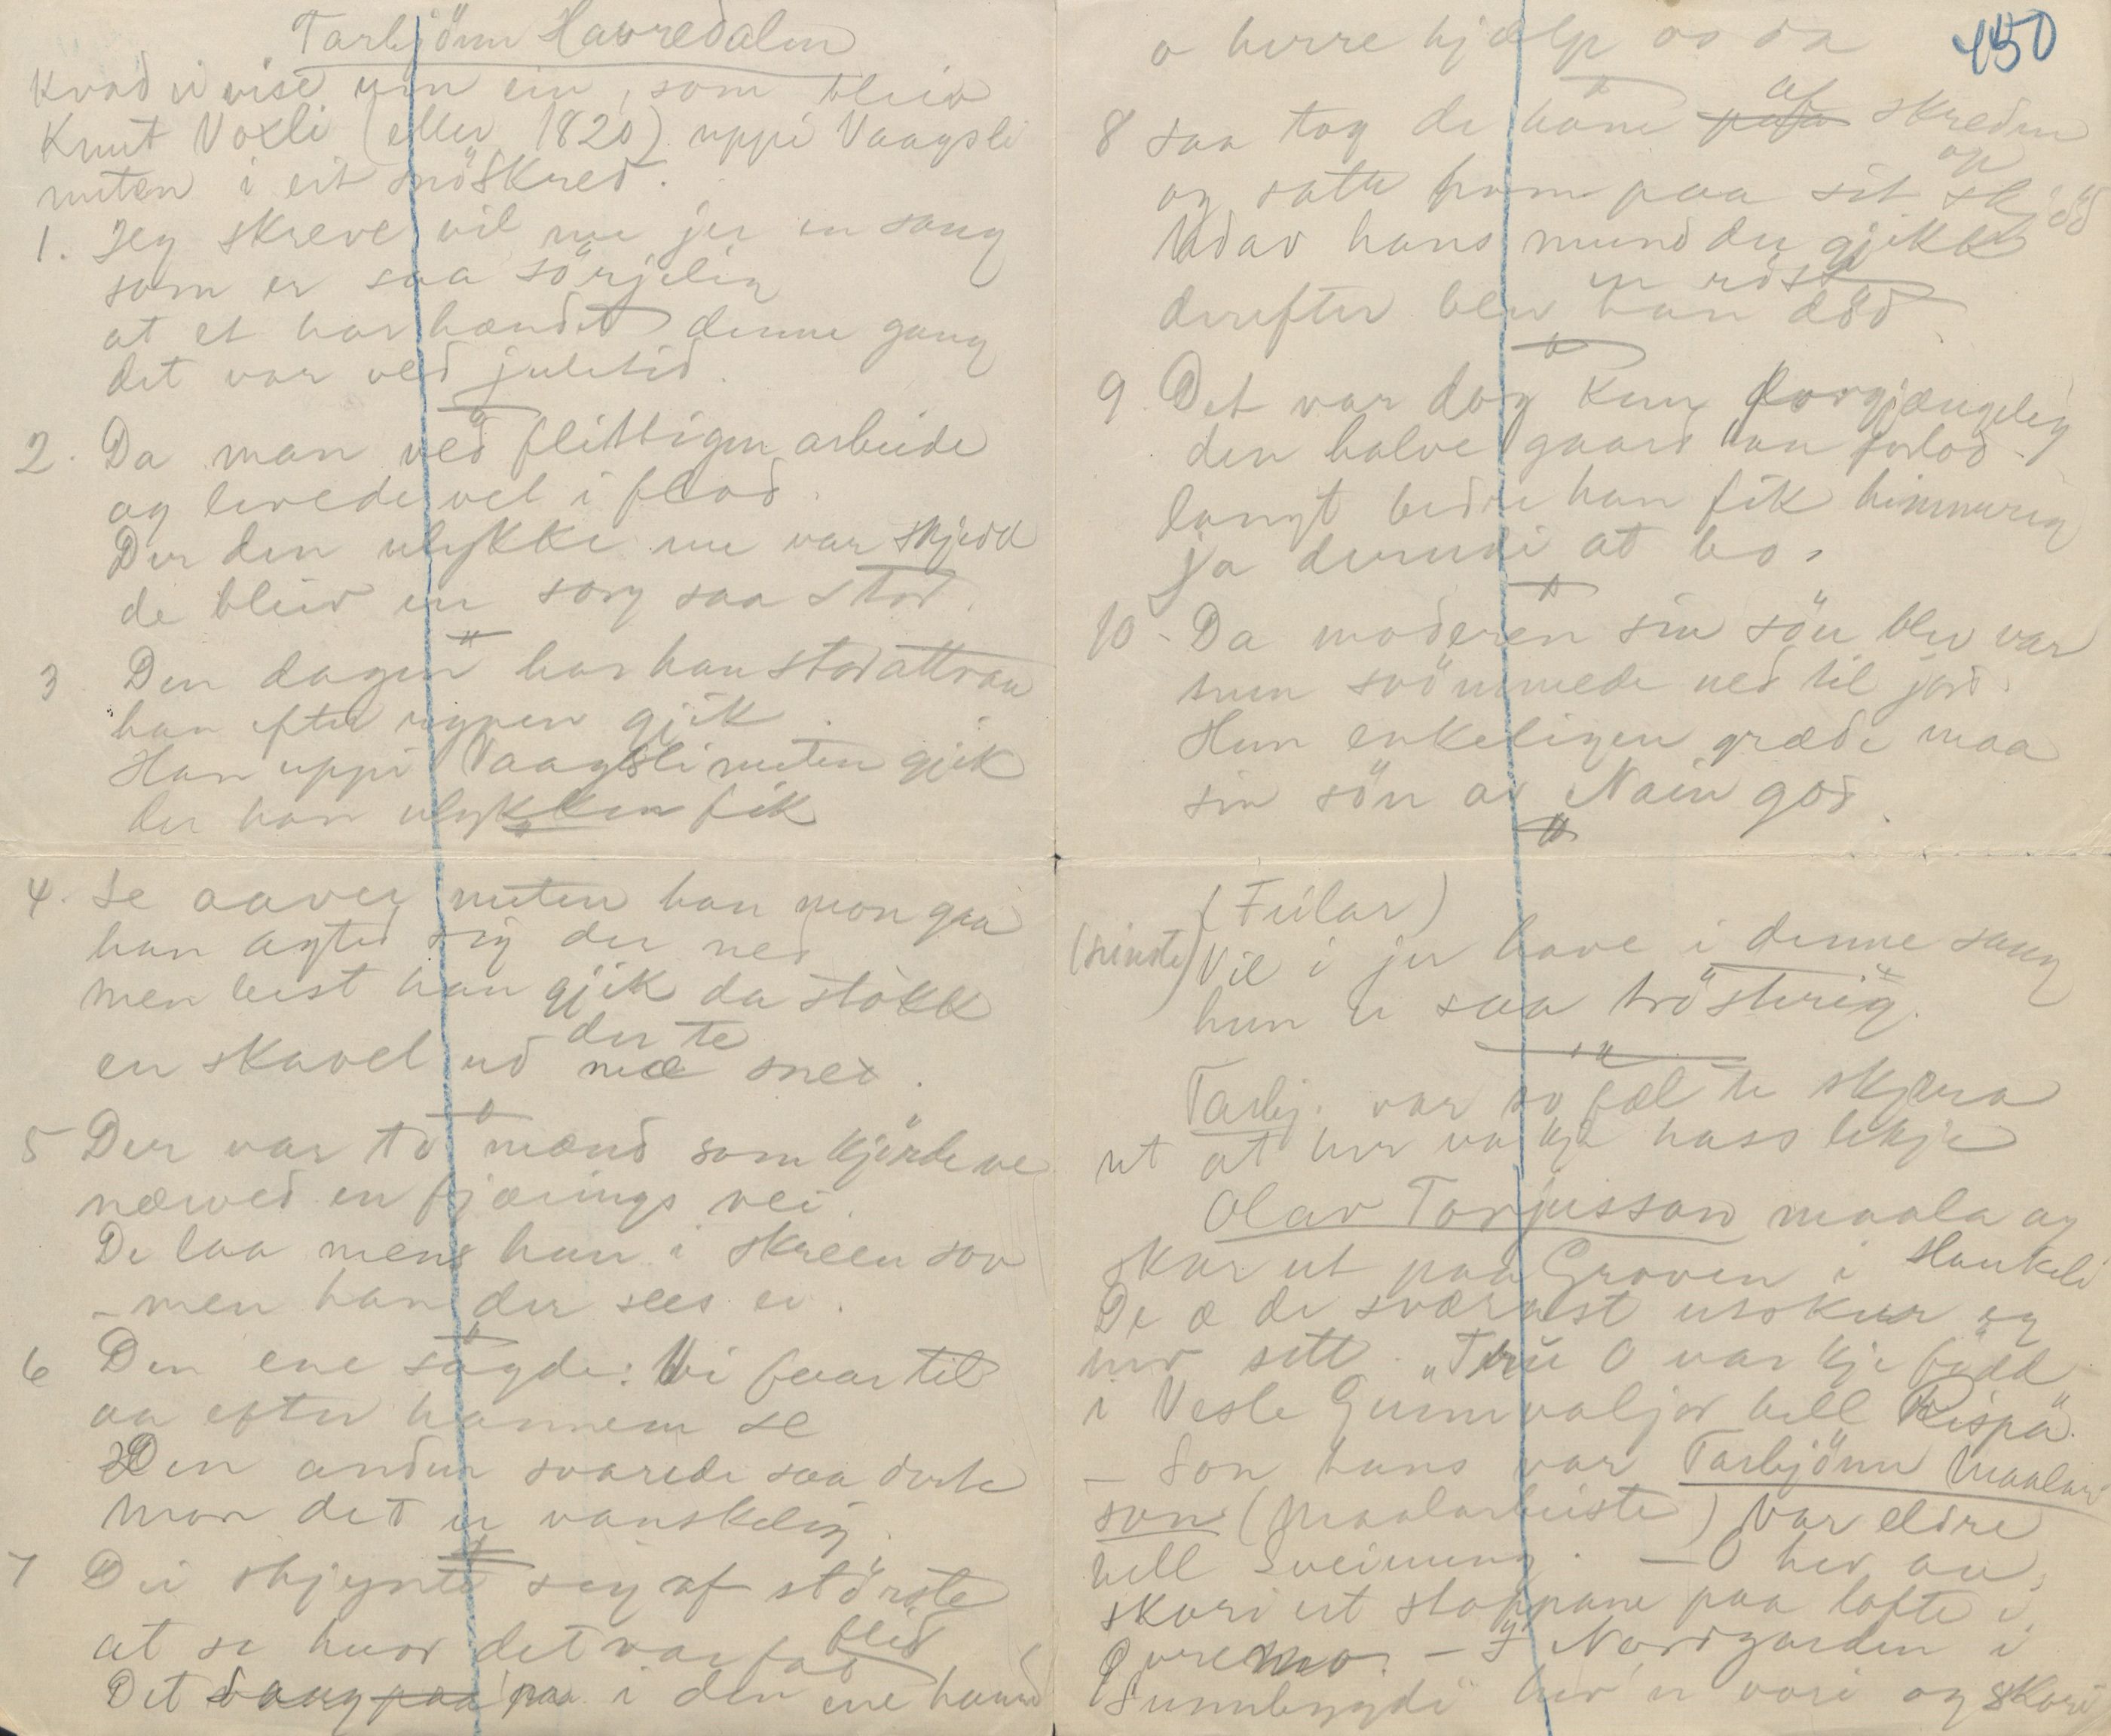 Tarbjönn Havredalen
Kvad ei vise um ein, som bleiv
Knut Voxli (eller 1820) uppi Vaagsli
nuten i eit snöskred.
1. Jeg skreve vil nu jer en sang
som er saa sörjelig
at et har hændet denne gang
det var ved juletid.
2. Da man ved flittigen arbeide
og levede vel i flod.
Der den ulykke nu var skjedd
de bleiv en sorg saa stor.
3. Den dagen har han stod attraa
han efter rypen gjik.
Han uppi Vaagslinuten gjik
der han ulykken fik
4. Se aaver nuten han mon gaa
han agted sig der ned
men best han gjik da stökk
der te
en skavel ud næ sned.
5 Der var to mænd som kjörde ve
nærved en fjærings vei.
De laa mens han i skreen sov
- men han der sees ei.
6 Den ene sagde: Vi faar til
aa efter hannem se
Den anden svarede saa
mon det er vanskelig.
7 Dei skjynte seg af störste
fleid
at se huor det var fat
Det paa i den ene haand
o herre hjælp os da
450
8 saa tog de ham af skreden
op
og satte ham paa sit skjöd
Udav hans mund der gjikk
en röst
derefter blev han död
9 Det var dog kun forgjængelig
den halve gaard han forlod
langt bedre han fik himmerig
ja derudi at bo.
10 - Da moderen sin sön blev var
hun svömmede ned til jord.
Hun enkeligen græde maa
sin sön av Nain god.
(Fúlar)
(siuste) Vil i jer have i denne sang
hun er saa trösterig.
Tarbj. var so fæl te skjera
ut at her va kje hass likje
Olav Torjusson maala og
skar ut paa Groven i Haukeli
De æ de sværast utskur eg
hev sett. "Tru O var kje fødd
i Vesle Gunnvaljor hell Rispa".
- Son hans var Tarbjönn Maalar
son (Maalarbeiste) var eldre
hell Sveinung. - O hev au
skori ut stoppane paa lofte i
- I Nordgarden i
Sunnbygdi hev 'n vori og skori